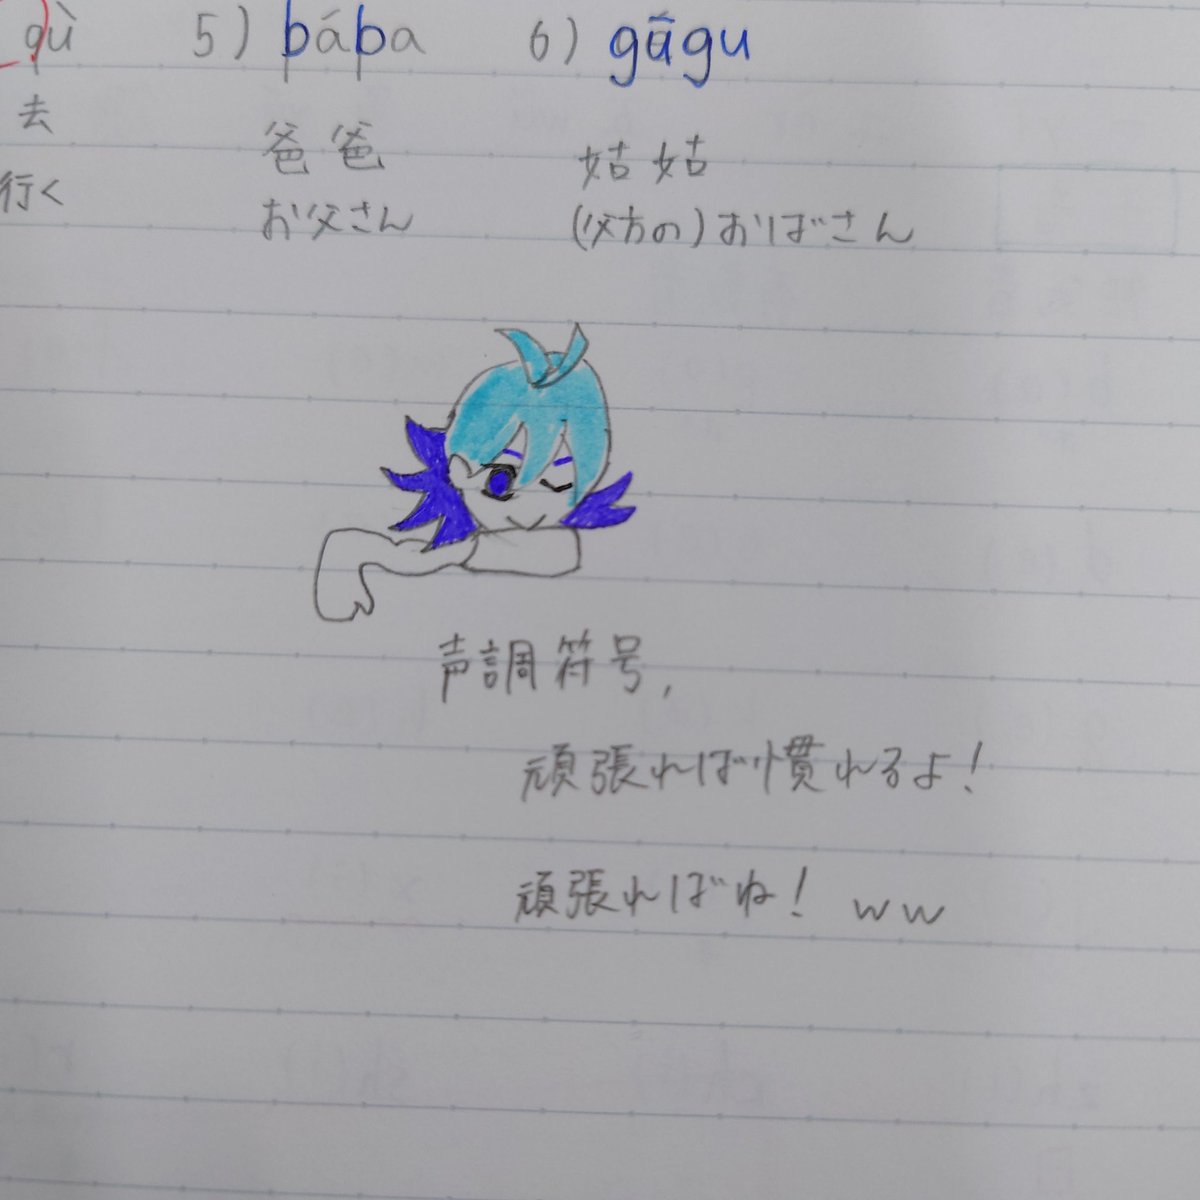 qù 5) bába 6) gāgu
去 爸爸 姑姑
行く お父さん (父方の)おばさん
声調符号,
頑張れば慣れるよ!
頑張ればね! ww